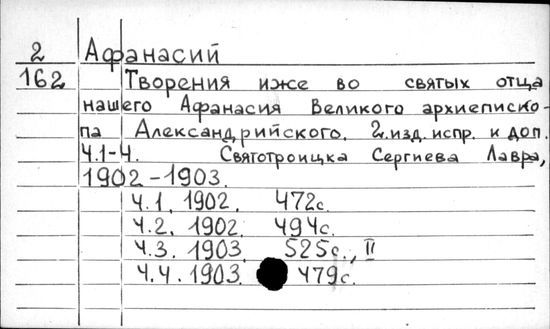 2 Афанасий
162 Творения иже во святых отца
нашего Афанасия Великого архиеписко-
па Александрийского. 2.изд.испр. и доп.
Ч.1-4. Святотроицка Сергиева Лавра,
1902-1903.
Ч.1. 1902. 472с.
Ч.2. 1902. 494с.
Ч.3. 1903. 525с., II
Ч.4. 1903. 479с.